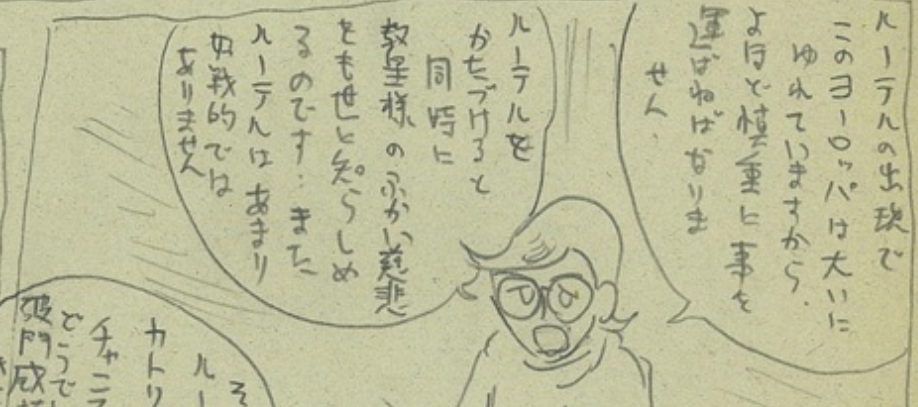 ルーテルの出現で
このヨーロッパは大いに
ゆれていますから
よほど慎重に事を
運ばねばなりま
せん.
ルーテルを
かたづけると
同時に
教皇様のふかい慈悲
をも世と知らしめ
るのです.また
ルーテルはあまり
好戦的では
ありません
そ
ルー
カトリ
チャンス
どうで
破門威